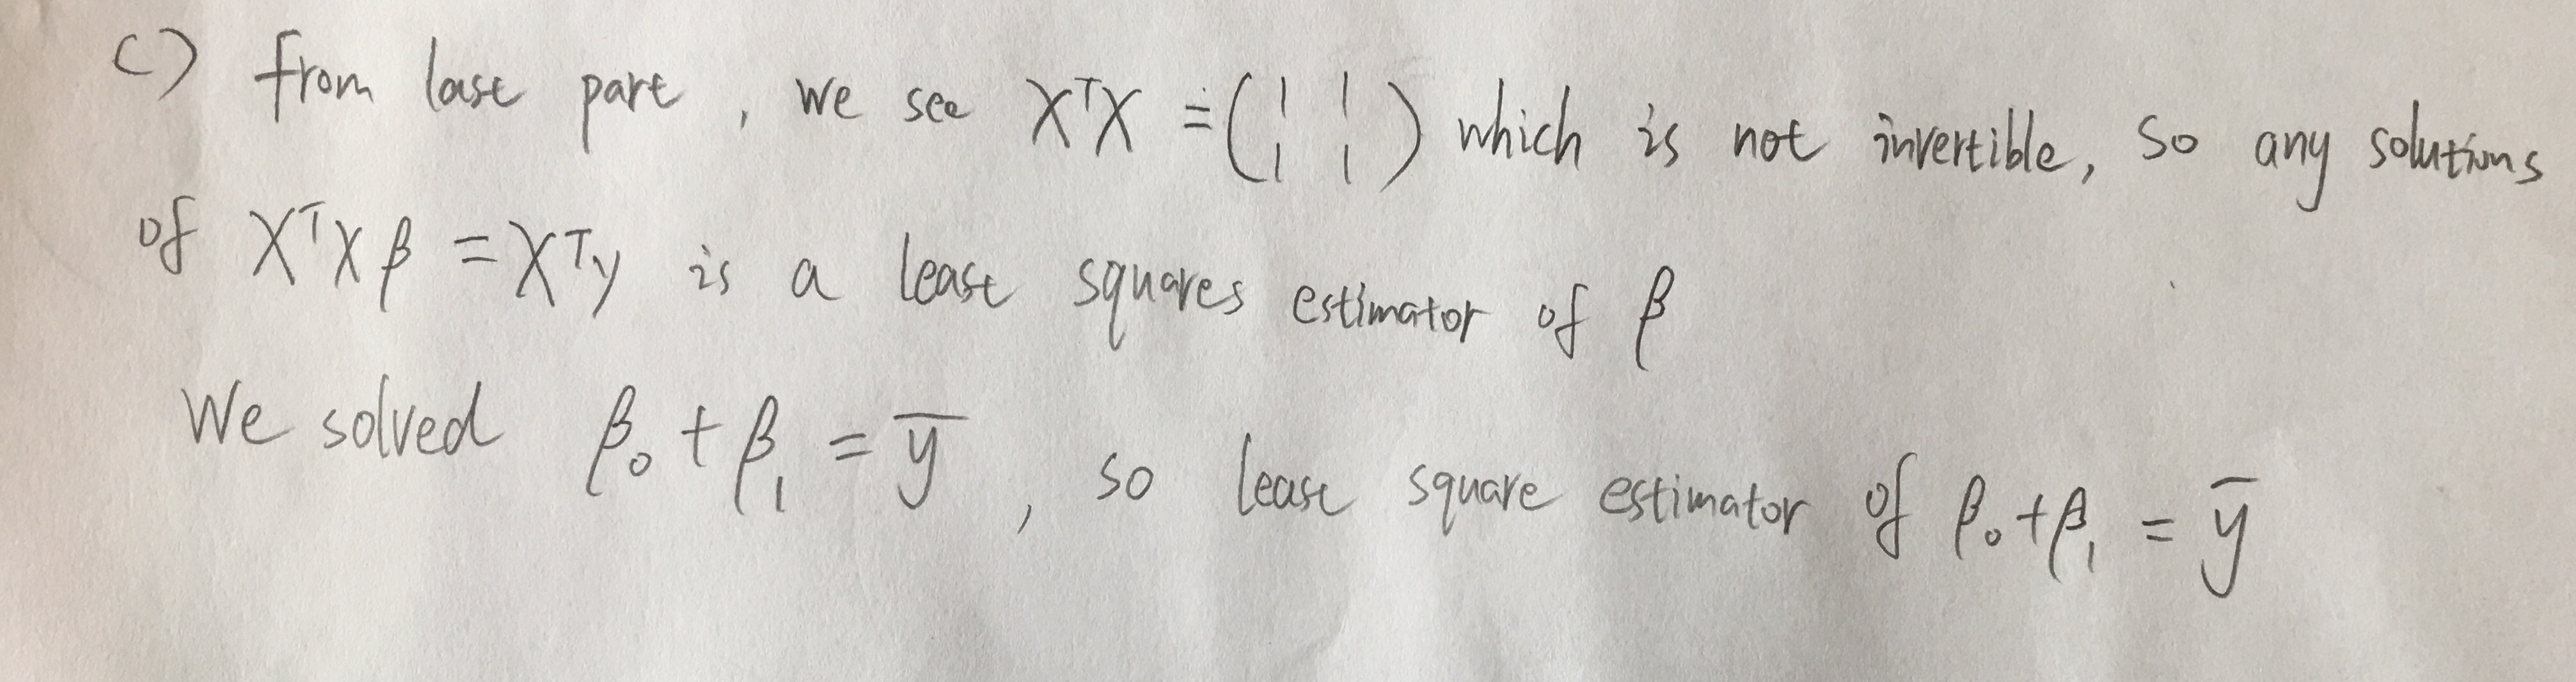 c) from last part, we see XᵀX = (1 1
1 1) which is not invertible, so any solutions
of XᵀXβ = Xᵀy is a least squares estimator of β
We solved β₀ + β₁ = ȳ, so least square estimator of β₀+β₁ = ȳ